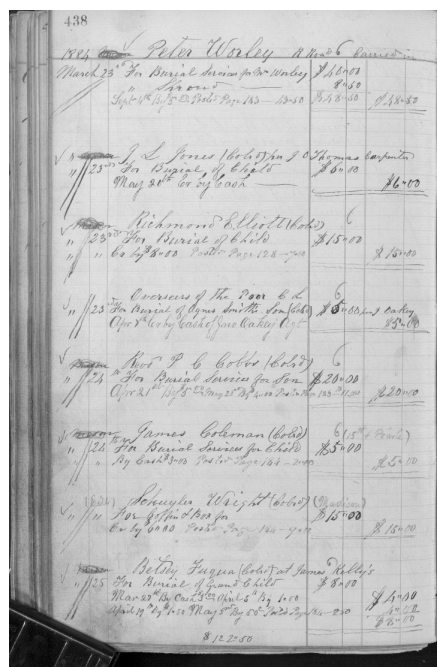 438
1884 Peter Worley R Road 6 Carried in
March 23rd For Burial Services for Mr Worley $40"00
" Shroud — 8"50
Sept 4th By 5 00 Posted Page 183 — 43-50 $48"50 $48"50
J L Jones (Cold) per J O Thomas Carpenter
" 23rd For Burial of Child $6"00
May 21st Cr by Cash — $6"00
Richmond Elliott (Cold) 6
" 23rd For Burial of Child $15"00
" " Cr by 8"00 Posted Page 128 — 7-00 $15"00
Overseers of the Poor C L 6
" 23rd For Burial of Agnes Smiths Son (Cold) $5"00 Oakey
Apr 8th Cr by Cash of Jno Oakey Agt $5"00
Revd P C Cobbs (Cold) 6
" 24 For Burial Services for Son $20"00
Apr 21st By 5 00 May 25th By 4.00 Posted Page 123 $20"00
James Coleman (Cold) 6 (15th & Pearle)
" 24 For Burial Services for Child $5"00
" " By Cash 3-00 Posted Page 124 — 2-00 $5"00
Schuyler Wright (Cold) (Madison)
" " For Coffin & Box for $15"00
Cr by 6"00 Posted Page 124 — 9-00 $15"00
Betsy Fuqua (Cold) at James Kelly's
" 25 For Burial of Grand Child $8"00
Mar 28th By Cash 3 00 April 5th By 1.00 $4"00
April 19th By 1-50 May 3rd By 50c Posted Page 124 — 2-00 4"00
$8"00
$122"50